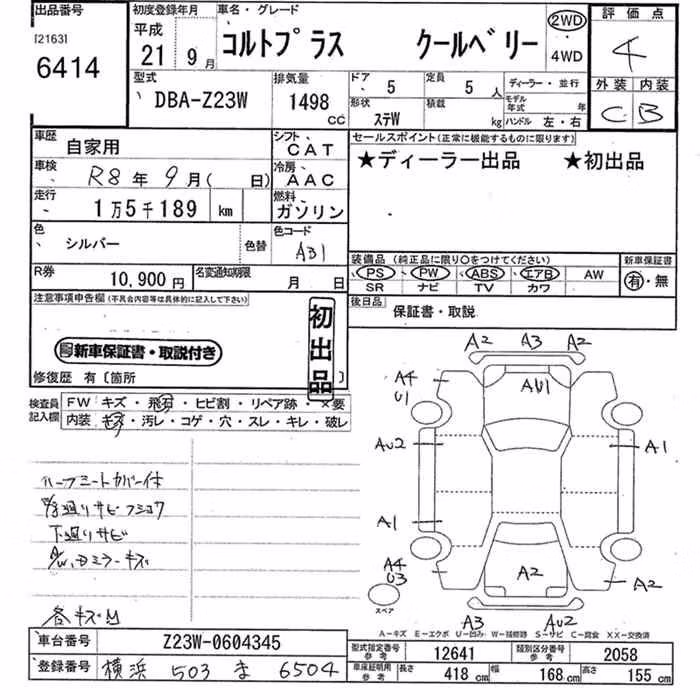 出品番号
[2163]
6414
初度登録年月
平成
21 9月
車名・グレード
コルトプラス クールベリー
2WD
・
4WD
評価点
4
外装 内装
C B
型式
DBA-Z23W
排気量
1498 cc
ドア 5
形状 ステW
定員 5 人
積載 kg
ディーラー・並行
モデル年式 年
ハンドル 左・右
車歴 自家用
車検 R8年9月( 日)
走行 1万5千189 km
色 シルバー 色替
シフト CAT
冷房 AAC
燃料 ガソリン
色コード A31
R券 10,900円
名変通知期限 月 日
セールスポイント(正常に機能するものに限ります)
★ディーラー出品 ★初出品
装備品(純正品に限り○をつけてください)
PS PW ABS エアB AW
SR ナビ TV カワ
新車保証書
有・無
後日品 保証書・取説
注意事項申告欄(不具合内容等は具体的に記入して下さい)
初出品
新車保証書・取説付き
修復歴 有〔箇所
検査員記入欄
FW キズ・飛石・ヒビ割・リペア跡・×要
内装 キズ・汚レ・コゲ・穴・スレ・キレ・破レ
下廻りサビ
各キズM
A2 A3 A2
A4 U1
AU1
AU2
A1
A1
A4 U3
A2
A2
スペア
A3 AU2
A-キズ E-エクボ U-凹み W-補修跡 S-サビ C-腐食 XX-交換済
車台番号 Z23W-0604345
登録番号 横浜 503 ま 6504
型式指定番号 参考 12641
類別区分番号 参考 2058
車庫証明用 参考 長さ 418 cm 幅 168 cm 高さ 155 cm